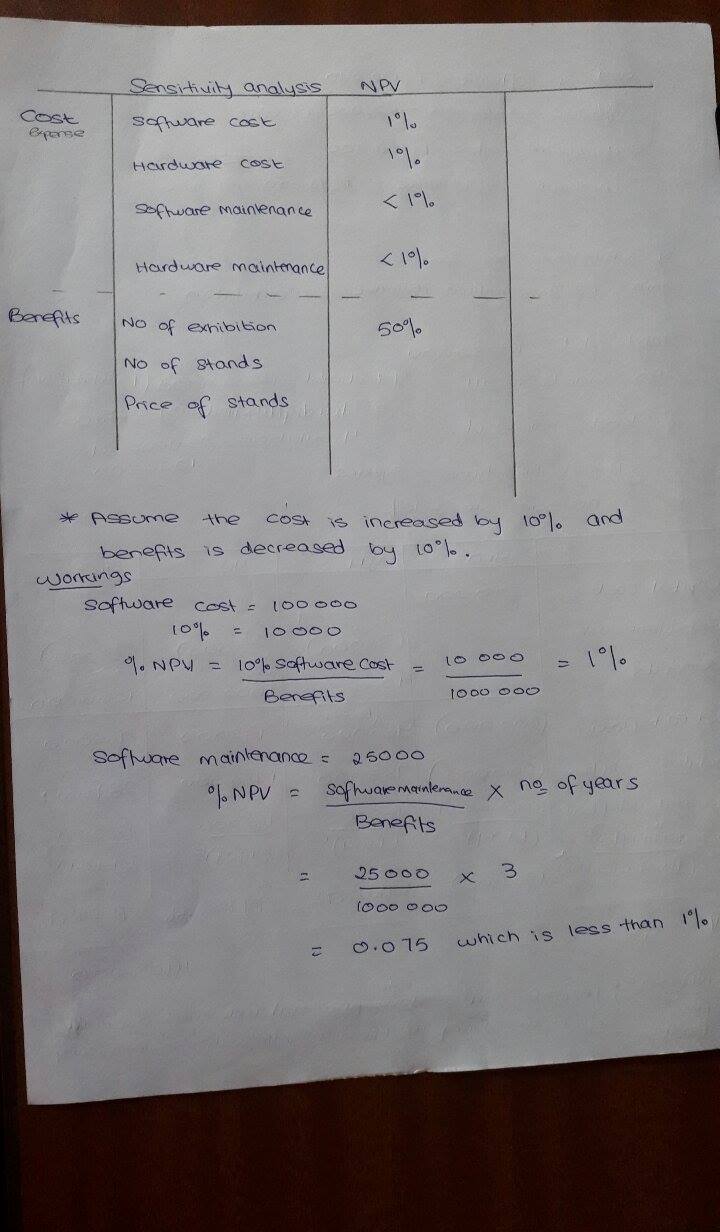 Sensitivity analysis NPV
Cost Software cost 1%
Expense
Hardware cost 1%
Software maintenance < 1%
Hardware maintenance < 1%
Benefits No of exhibition 50%
No of stands
Price of stands
* Assume the cost is increased by 10% and
benefits is decreased by 10%.
Workings
Software cost = 100 000
10% = 10 000
% NPV = 10% Software Cost / Benefits = 10 000 / 1000 000 = 1%
Software maintenance = 25000
% NPV = Software maintenance / Benefits × no of years
= 25 000 / 1000 000 × 3
= 0.075 which is less than 1%